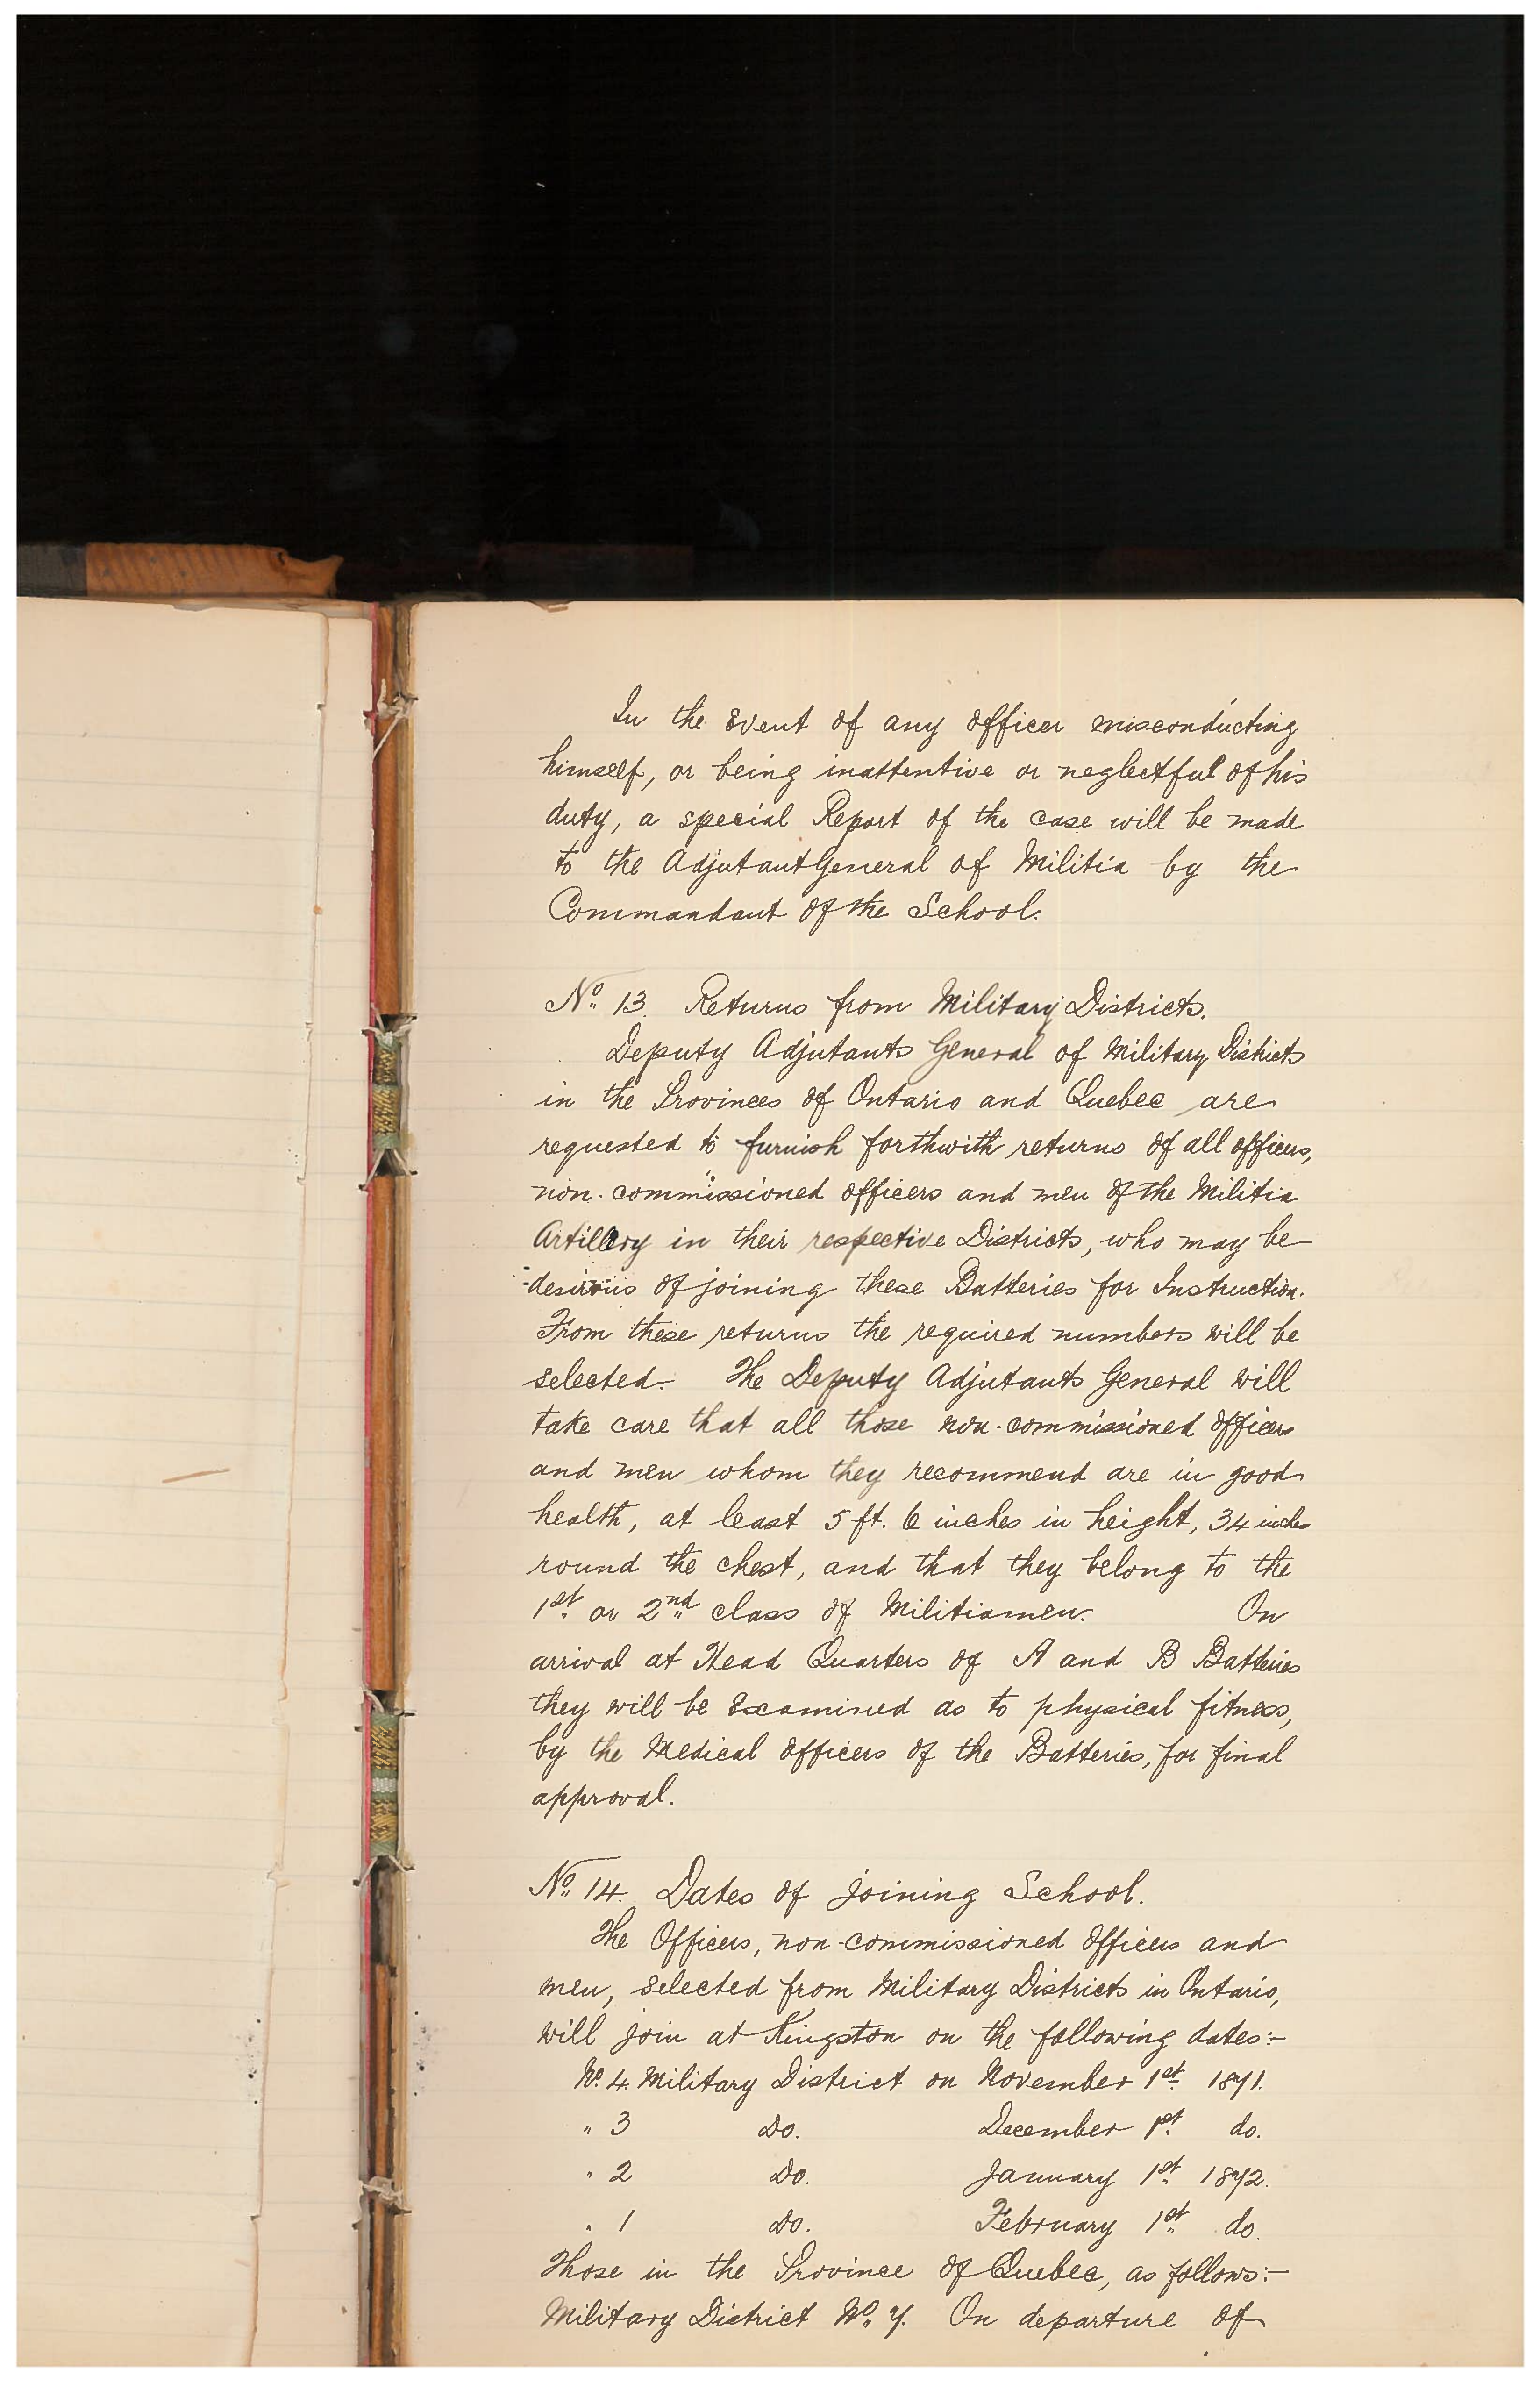 In the Event of any officer misconducting
himself, or being inattentive or neglectful of his
duty, a special Report of the case will be made
to the Adjutant General of Militia by the
Commandant of the School.
No. 13. Returns from Military Districts.
Deputy Adjutants General of Military Districts
in the Provinces of Ontario and Quebec are
requested to furnish forthwith returns of all officers,
non-commissioned officers and men of the Militia
Artillery in their respective Districts, who may be
desirous of joining these Batteries for Instruction.
From these returns the required numbers will be
selected. The Deputy Adjutants General will
take care that all those non-commissioned officers
and men whom they recommend are in good
health, at least 5 ft. 6 inches in height, 34 inches
round the chest, and that they belong to the
1st or 2nd class of Militiamen. On
arrival at Head Quarters of A and B Batteries
they will be Examined as to physical fitness,
by the Medical officers of the Batteries, for final
approval.
No. 14. Dates of joining School.
The Officers, non-commissioned officers and
men, selected from Military Districts in Ontario,
will join at Kingston on the following dates:-
No. 4. Military District on November 1st. 1871.
" 3 Do. December 1st. do.
" 2 Do. January 1st. 1872.
" 1 Do. February 1st. do.
Those in the Province of Quebec, as follows:-
Military District No. 7. On departure of